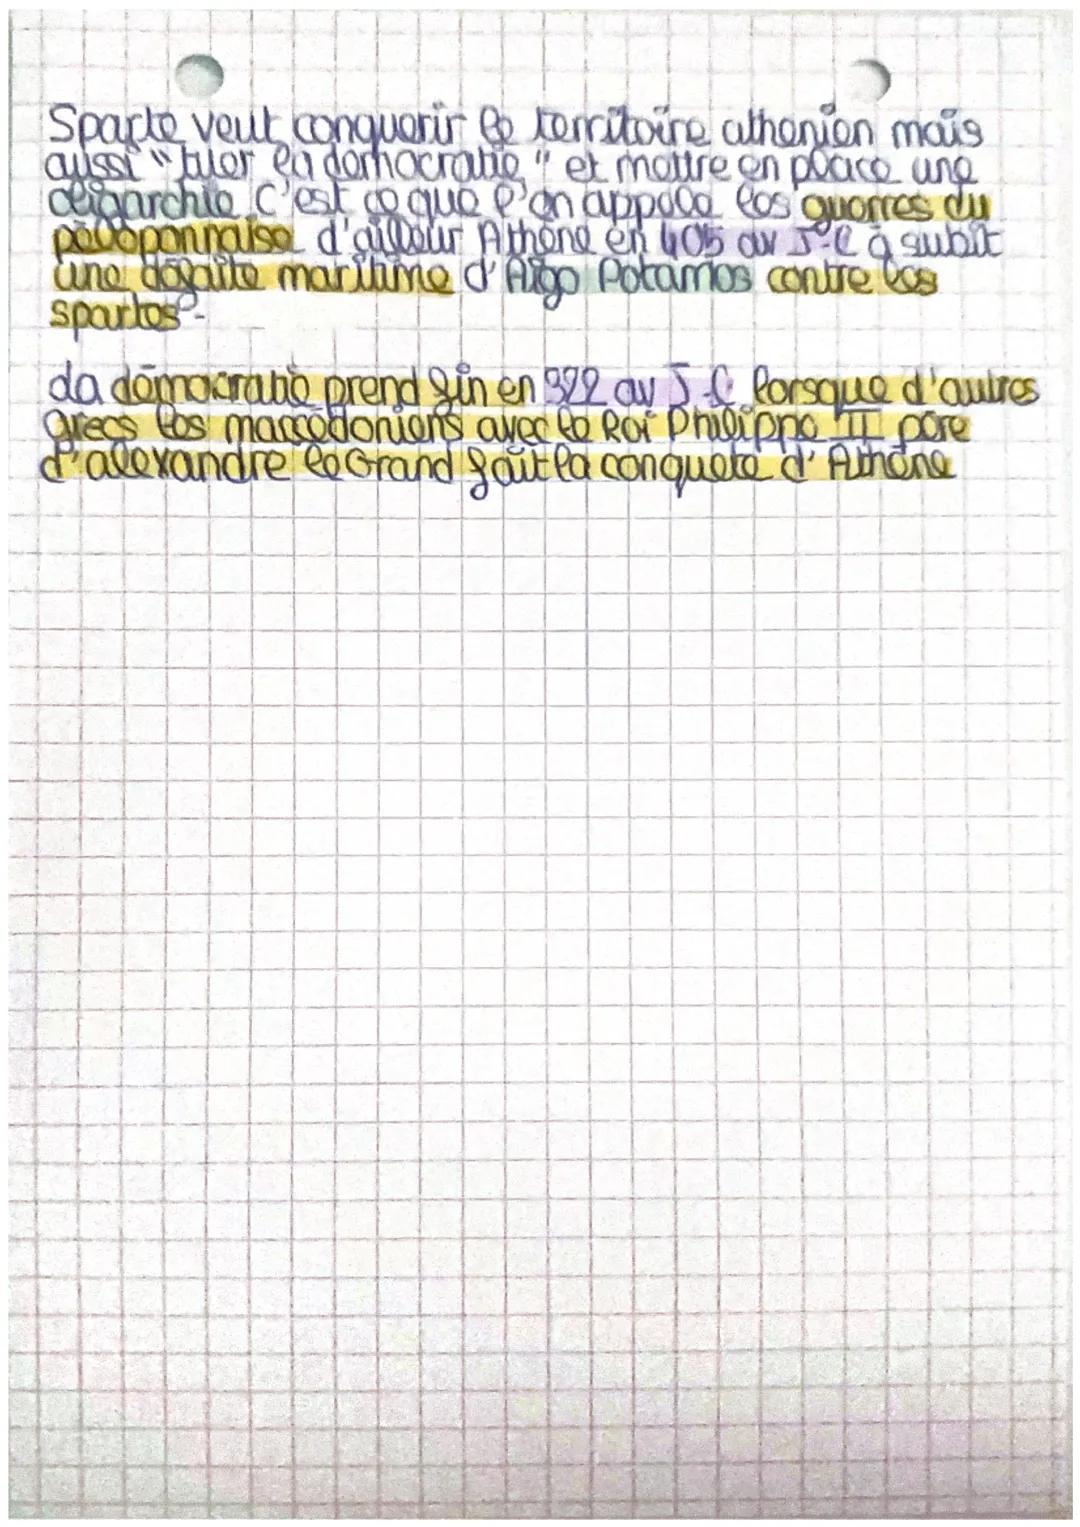 Sparte veut conquerir le territoire athenien mais
aussi "tuer la démocratie" et mettre en place une
oligarchie C'est ce que l'on appele les guerres du
péloponnaise d'ailleur Athène en 405 av J-C à subit
une défaite maritime d'Aigo Potamos contre les
spartes.
La démocratie prend fin en 322 av J-C lorsque d'autres
grecs les macédoniens avec le Roi Philippe II père
d'alexandre le Grand fait la conquete d'Athène